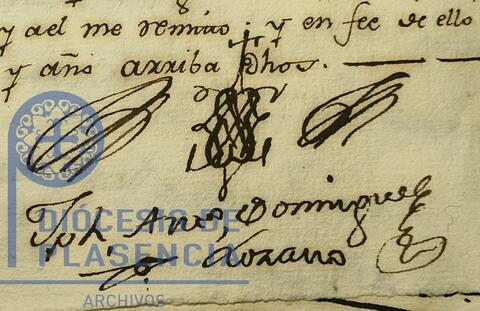 y a el me remito; y en fee de ello
y año arriba dhos.
Jph. Anto Dominguez
Lozano
DIÓCESIS DE
PLASENCIA
ARCHIVOS